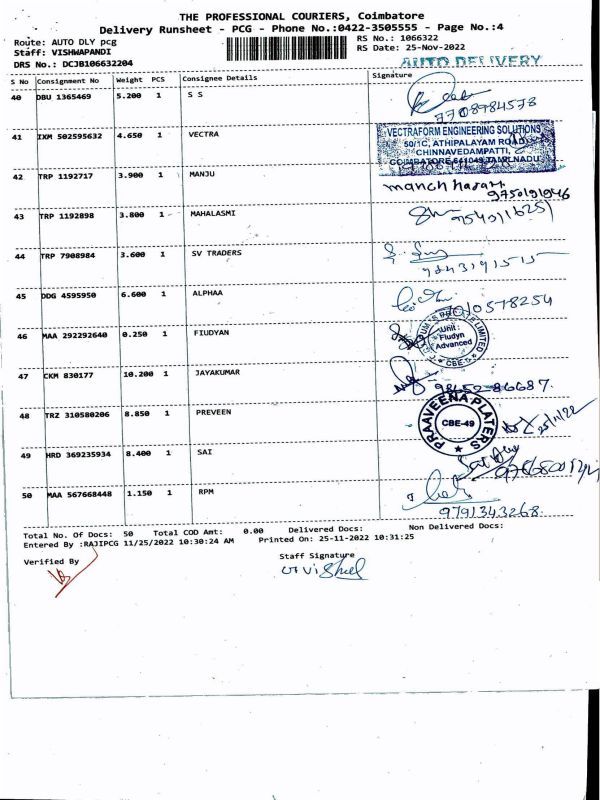 THE PROFESSIONAL COURIERS, Coimbatore
Delivery Runsheet - PCG - Phone No.:0422-3505555 - Page No.:4
Route: AUTO DLY pcg
RS No.: 1066322
Staff: VISHWAPANDI
RS Date: 25-Nov-2022
DRS No.: DCJB106632204
AUTO DELIVERY
S No Consignment No Weight PCS Consignee Details Signature
40 DBU 1365469 5.200 1 S S
7708984578
41 IXM 502595632 4.650 1 VECTRA
VECTRAFORM ENGINEERING SOLUTIONS
50/1C, ATHIPALAYAM ROAD
CHINNAVEDAMPATTI,
COIMBATORE 641049 TAMILNADU
42 TRP 1192717 3.900 1 MANJU
9750191946
43 TRP 1192898 3.800 1 MAHALASMI
44 TRP 7908984 3.600 1 SV TRADERS
45 DDG 4595950 6.600 1 ALPHAA
46 MAA 292292640 0.250 1 FIUDYAN
Unit :
Fludyn
Advanced
CBE-6
47 CKM 830177 10.200 1 JAYAKUMAR
9865286687.
48 TRZ 310580206 8.850 1 PREVEEN
PRAAVEENA PLATERS
CBE-49
25/11/22
49 HRD 369235934 8.400 1 SAI
50 MAA 567668448 1.150 1 RPM
9791343268.
Total No. Of Docs: 50 Total COD Amt: 0.00 Delivered Docs: Non Delivered Docs:
Entered By :RAJIPCG 11/25/2022 10:30:24 AM Printed On: 25-11-2022 10:31:25
Verified By
Staff Signature